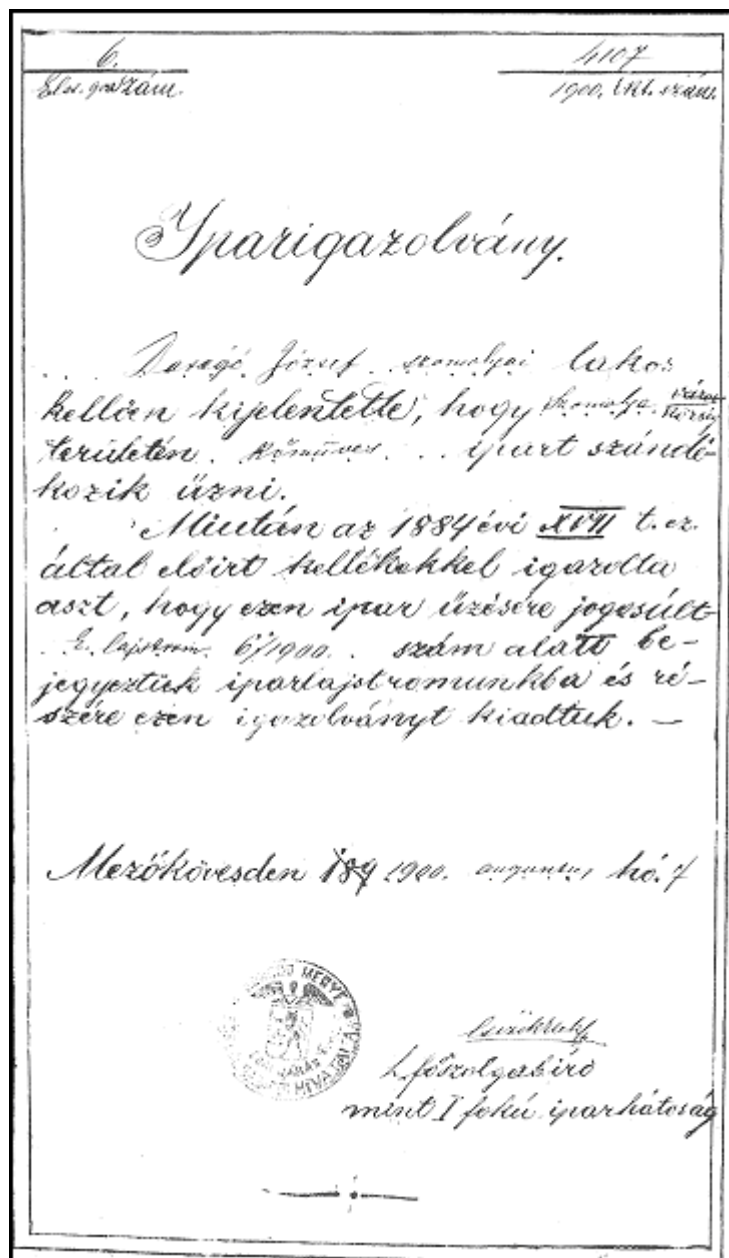 6.
4107
szám.
1900. ikt. szám.
Iparigazolvány.
József szomolyai lakos
kellően kijelentette, hogy Szomolya város község
területén kőmüves ipart szándé-
kozik űzni.
Miután az 1884 évi XVII t. cz.
által előirt kellékekkel igazolta
aszt, hogy ezen ipar űzésére jogosúlt
E. lajstrom. 6/1900. szám alatt be-
jegyeztük iparlajstromunkba és ré-
szére ezen igazolványt kiadtuk. —
Mezőkövesden 189 1900. augusztus hó. 7
MEGYE
JÁRÁS
HIVATALA
főszolgabíró
mint I fokú iparhatóság